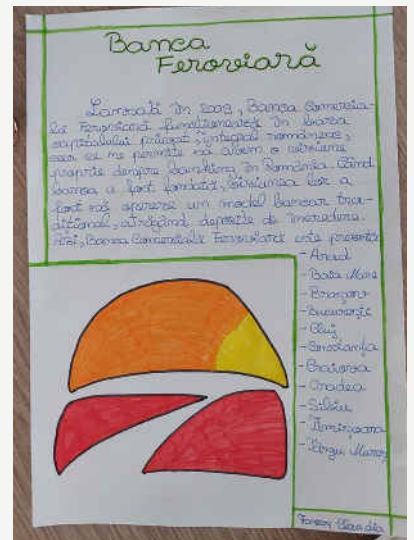 Banca
Feroviară
Lansată în 2009, Banca Comercia-
lă Feroviară funcționează în baza
capitalului privat, integral românesc,
ceea ce ne permite să avem o viziune
proprie despre banking în România. Când
banca a fost fondată, viziunea lor a
fost să opereze un model bancar tra-
dițional, atrăgând depozite de încredere.
Azi, Banca Comercială Feroviară este prezentă
- Arad
- Baia Mare
- Brașov
- București
- Cluj
- Constanța
- Craiova
- Oradea
- Sibiu
- Timișoara
- Târgu Mureș